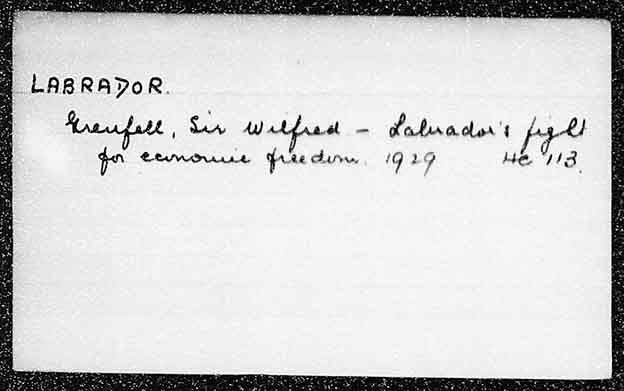 LABRADOR.
Grenfell, Sir Wilfred - Labrador's fight
for economic freedom. 1929 HC 113.